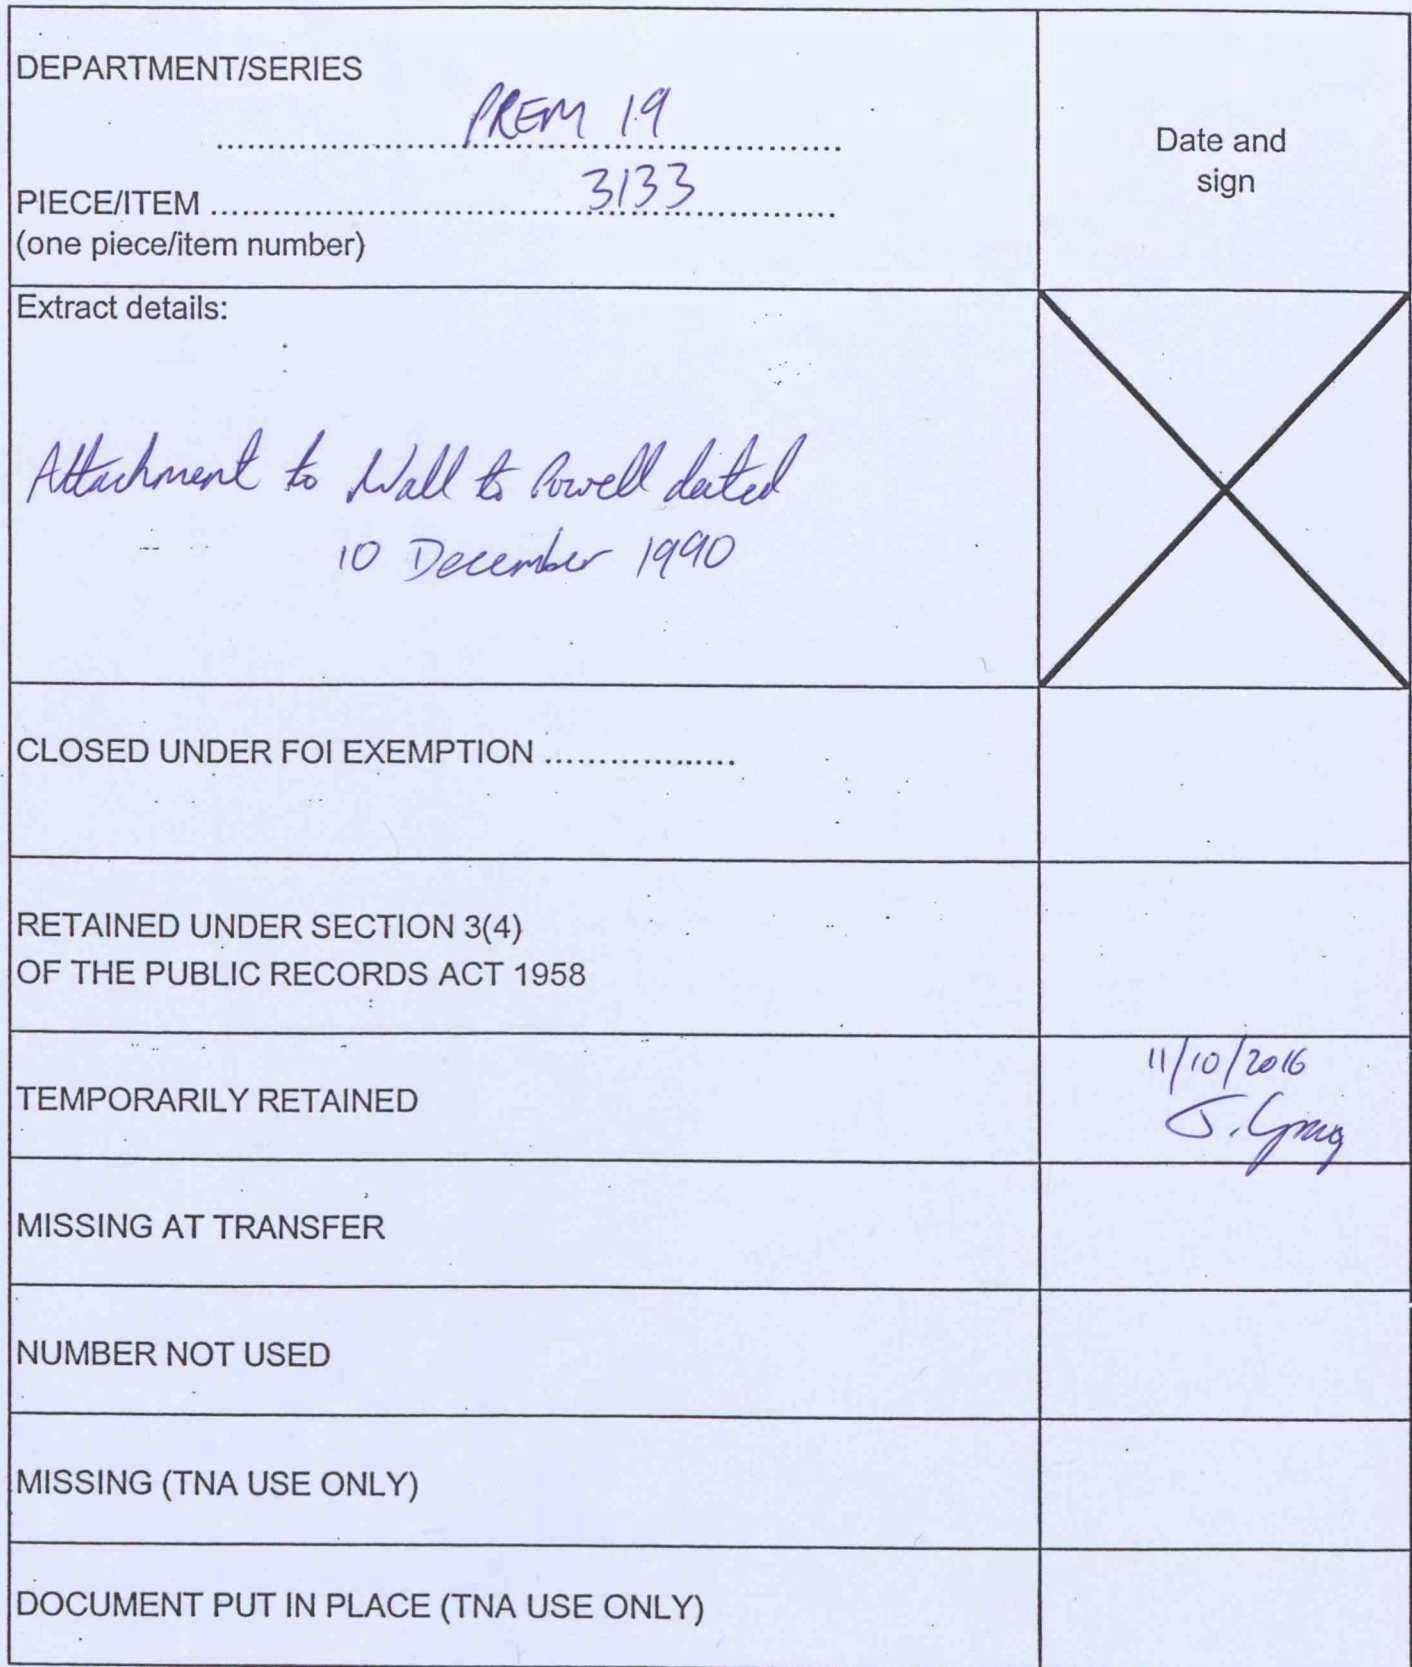 DEPARTMENT/SERIES
PREM 19
Date and
sign
PIECE/ITEM ........................................ 3133
(one piece/item number)
Extract details:
Attachment to Wall to Powell dated
10 December 1990
CLOSED UNDER FOI EXEMPTION ..................
RETAINED UNDER SECTION 3(4)
OF THE PUBLIC RECORDS ACT 1958
TEMPORARILY RETAINED
11/10/2016
J. Gray
MISSING AT TRANSFER
NUMBER NOT USED
MISSING (TNA USE ONLY)
DOCUMENT PUT IN PLACE (TNA USE ONLY)